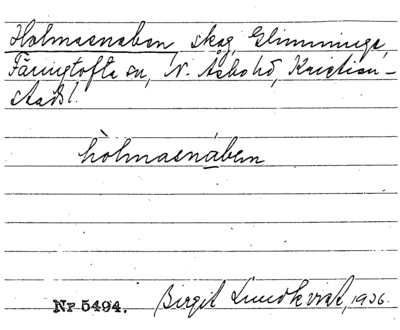 Holmasnaben, skog, Glimminge,
Färingtofta sn, N. Åsbo hd, Kristian-
stads l.
hòlmasnáben
Nr 5494. Birgit Lundkvist, 1936.